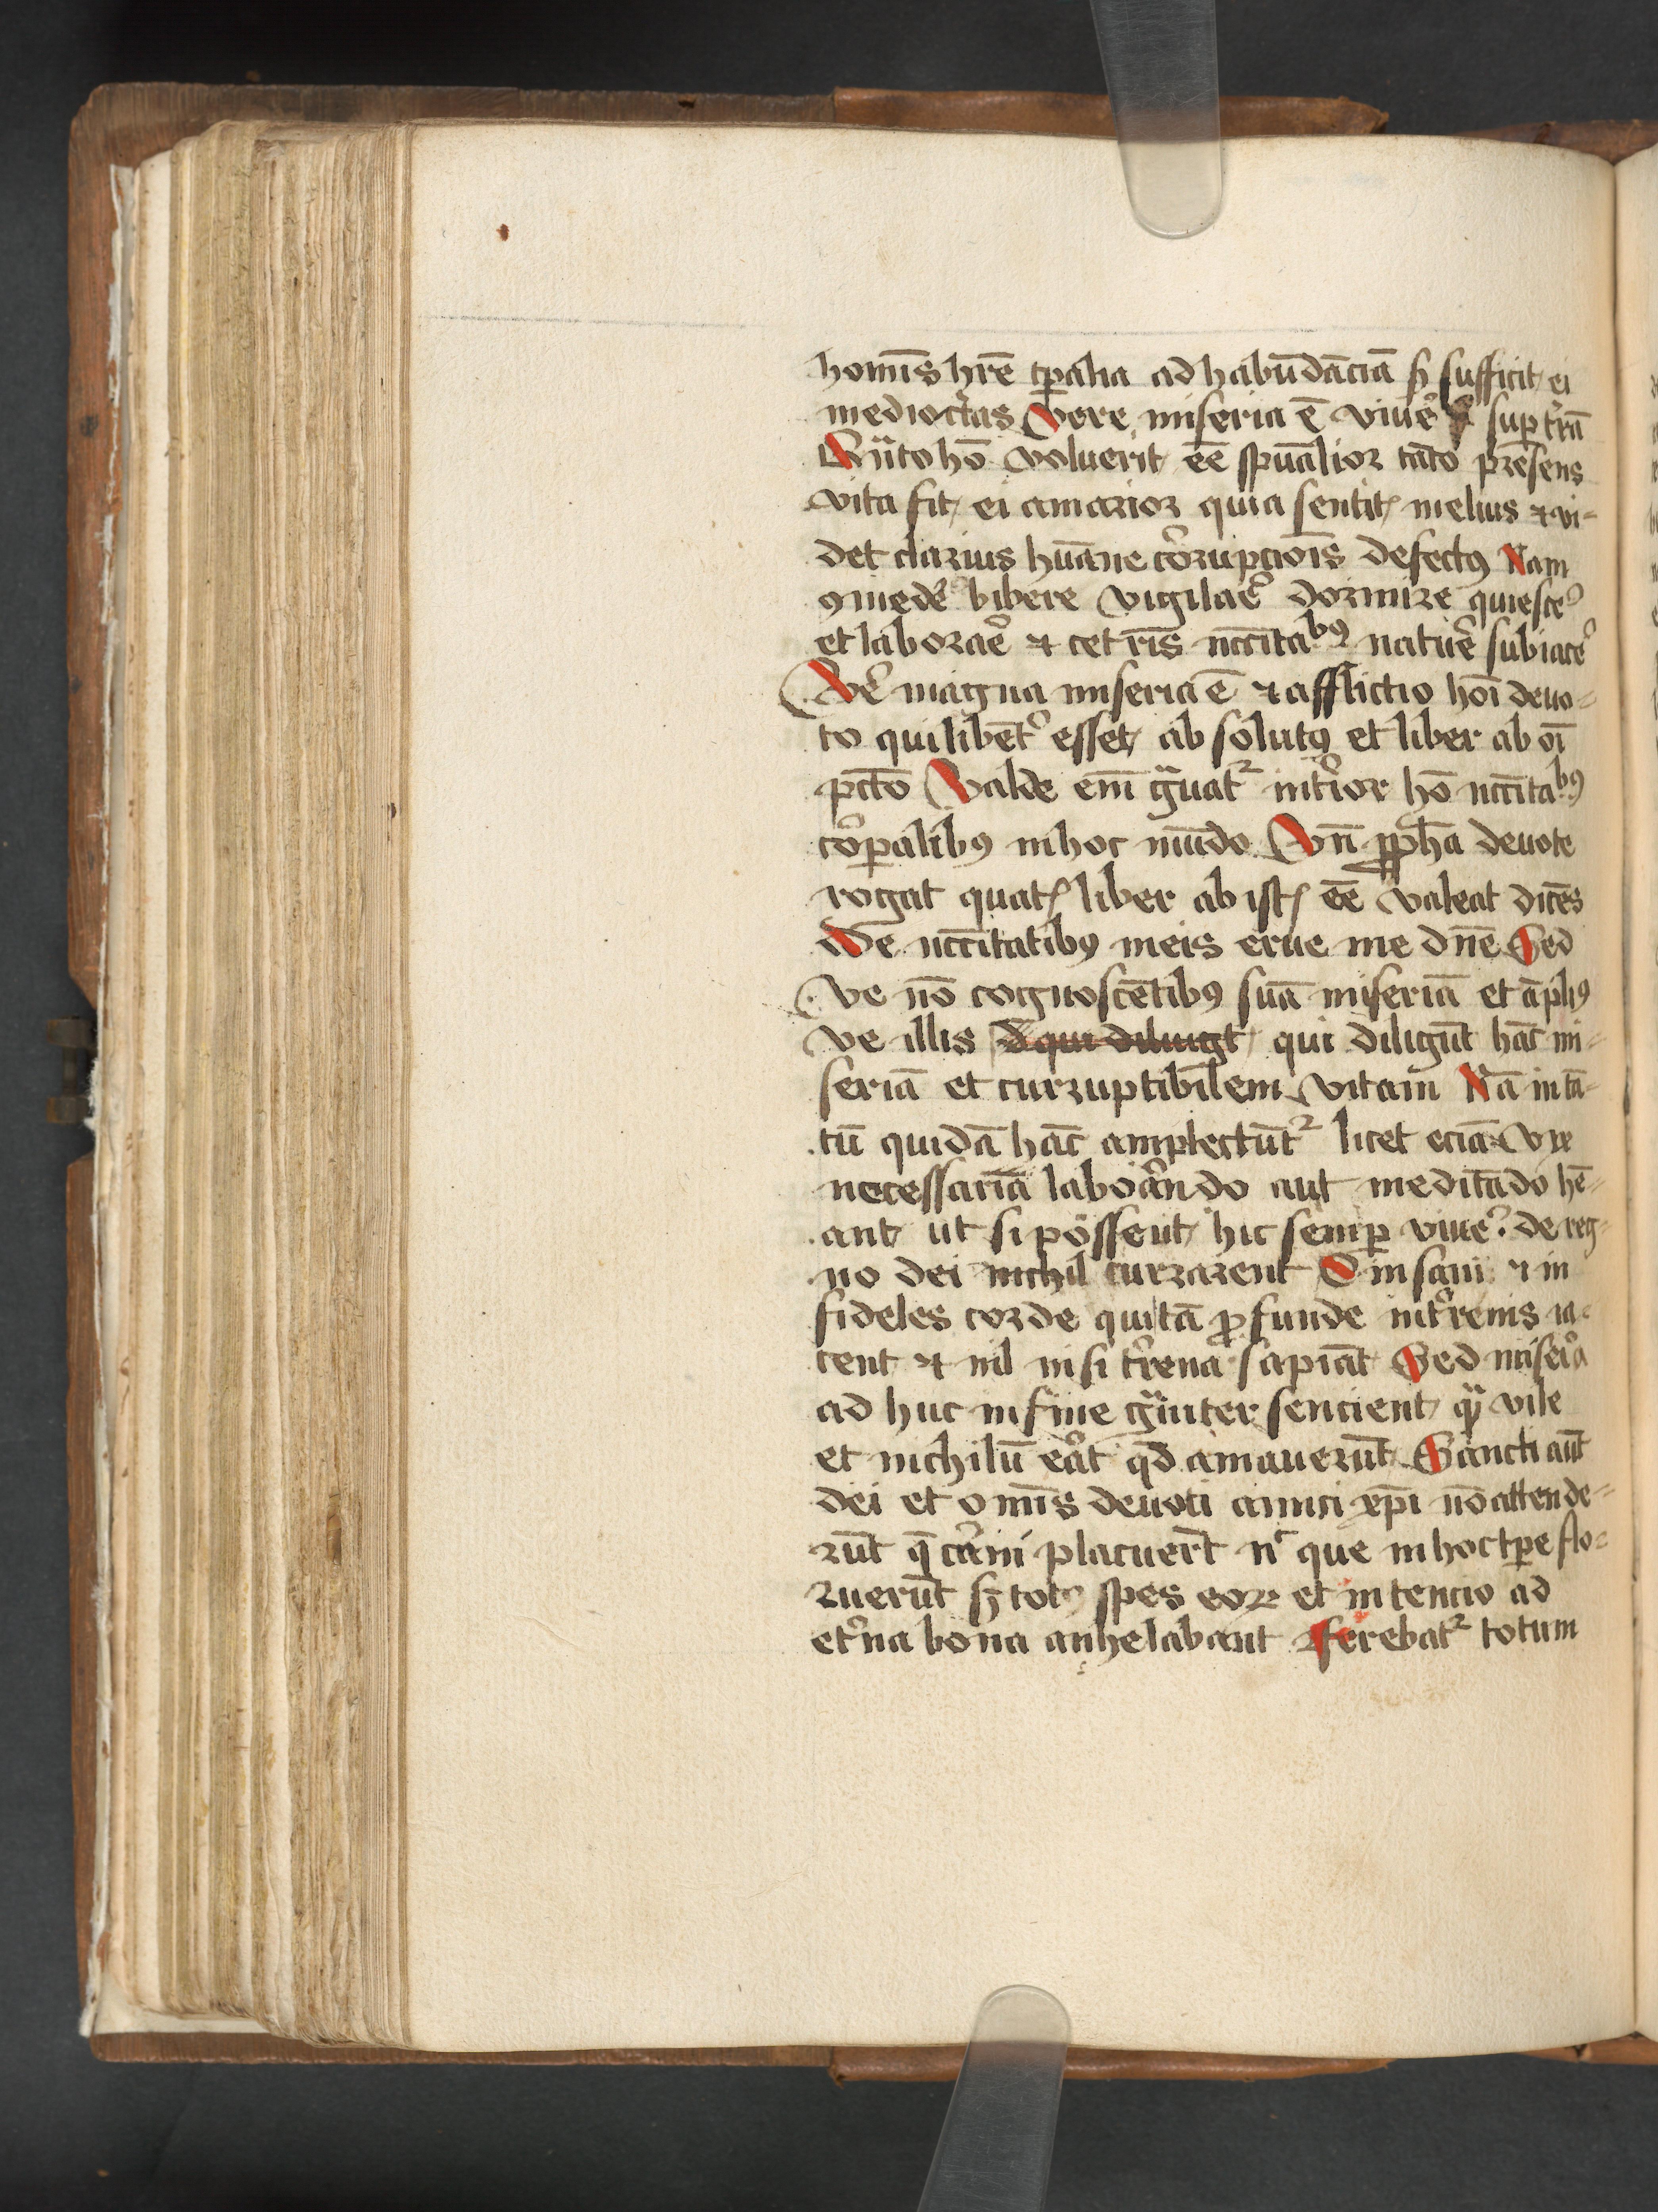 homīs hr̄e tp̄alia ad habūdāciā sꝫ sufficit ei
mediocͬtas Vere miseria ē viue᷑ sup tr̄ā
Q̈nto hō voluerit ēe spūalior tāto presens
vita fit ei amarior quia sentit melius ⁊ vi-
det clarius hūane cor᷑upciōis defectꝰ Nam
ꝯmede᷑ bibere vigilar᷑e dormire quiesce᷑
et laborar᷑e ⁊ cet᷑ris nccītabꝰ natur᷑e subiace᷑
Ver᷑ magna miseria ē ⁊ afflictio hoī deuo-
to qui libēt᷑ esset absolutꝰ et liber ab oī
pctō Valde em̄ gͣuatᷣ int᷑ior hō nccītabꝰ
cor᷑palibꝰ in hoc mūdo Vn̄ ꝓph̄a deuote
rogat quatꝰ liber ab istꝭ ēe valeat dicēs
De nccītatibꝰ meis erue me dn̄e Sed
ve nō cognoscētibꝰ suā miseriā et āpliꝰ
ve illis d qui diliugt qui diligūt hāc mi-
seriā et curruptibilem vitam Nā in tā-
tū quidā hāc amplectūtᷣ licet eciā vix
necessaria laborando aut meditādo hē-
ant ut si possent hic semꝑ viue᷑ de reg-
no dei nichil curarent O insani ⁊ in
fideles corde qui tā ꝓfunde in tr᷑enis ia-
cent ⁊ nil nisi tr᷑ena sapiāt Sed miseri
ad huc in fine gͣuiter sencient qͣ vile
et nichilū er᷑at qd̄ amauerūt Sancti aūt
dei et om̄s deuoti amici xp̄i nō attende-
rūt q̄ car᷑ni placuer̄t nͨ que in hoc tp̄e flo-
ruerūt sꝫ totꝰ spes eoꝝ et intencio ad
et᷑na bona anhelabant Ferebatᷣ totum